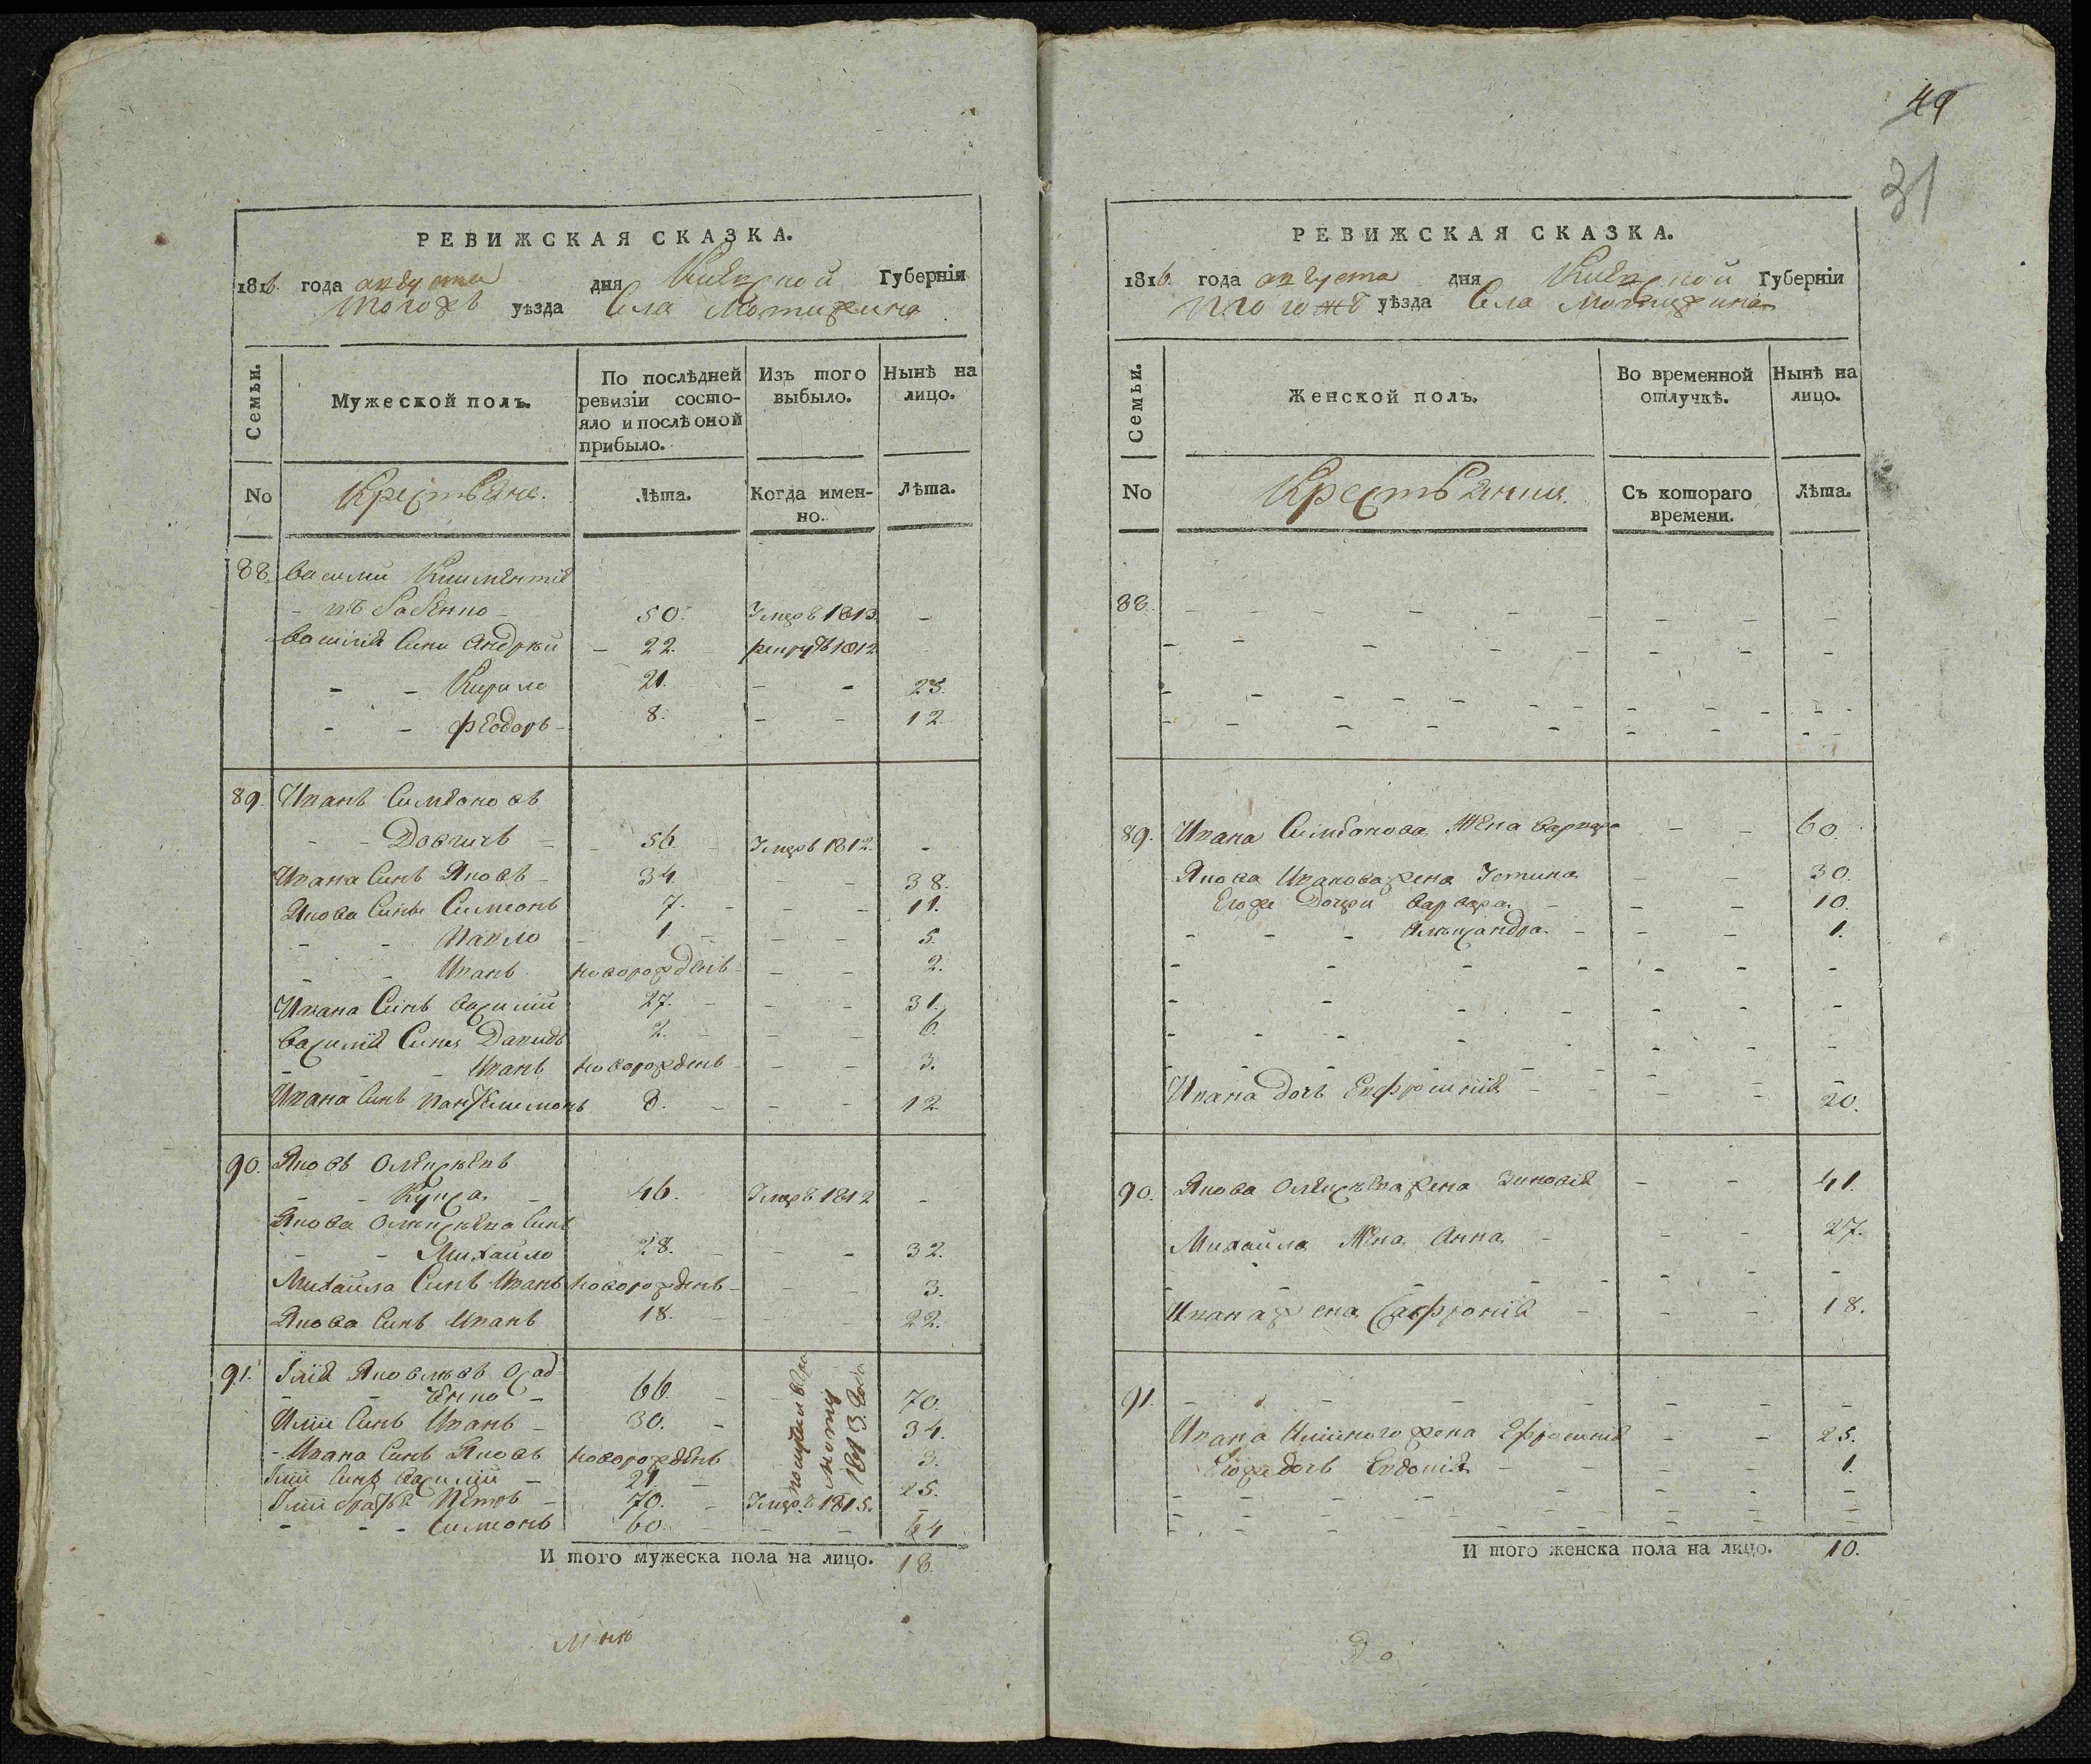 РЕВИЖСКАЯ СКАЗКА.
1816. года августа дня Киевской Губернїи
тогожъ уѣзда Села Мотижина
Семьи.
Мужеской полъ.
По послѣдней ревизїи состояло и послѣ оной прибыло.
Изъ того выбыло.
Нынѣ на лицо.
No
Крестьяне.
Лѣта.
Когда именно.
Лѣта.
88. Василий
50. Умеръ 1813. -
Василия Сини Андрей - 22. рекрутъ 1812
- - Кирило 21. - - 25.
- - Феодоръ - 8. - - 12.
89. Иванъ Симеоновъ
- - Довгичъ - 56. Умеръ 1812. -
Ивана Синъ Яковъ - 34. - - 38.
Якова Сины Симеонъ 7. - - - 11.
- - Павло - 1. - - - 5.
- - Иванъ новорожденъ - - - 2.
Ивана Синъ Василий 27. - - - 31.
Василия Сины Давидъ 2. - - - 6.
- - - Иванъ новорожденъ - - - 3.
Ивана Синъ Пантелимонъ 8. - - - 12.
90. Яковъ Олексѣевъ
- - - 46. Умеръ 1812 -
Якова Олексѣева Синъ
- - Михайло 28. - - - 32.
Михайла Синъ Иванъ новорожденъ - - - 3.
Якова Синъ Иванъ 18. - - - 22.
91. Илия Яковлевъ Осад
- - ченко - 66. - - 70.
Илии Синъ Иванъ - 30. - 34.
- Ивана Синъ Яковъ новорожденъ 3.
Илии Синъ Василий - 21. - 25.
1813. года
Илии братья Петръ - 70. - Умеръ 1815. -
- - - Симеонъ 60. - - - 64
И того мужеска пола на лицо. 18.
49
31
РЕВИЖСКАЯ СКАЗКА.
1816. года августа дня Киевской Губернїи
тогожъ уѣзда Села Мотижина
Семьи.
Женской полъ.
Во временной отлучкѣ.
Нынѣ на лицо.
No
Крестьянки.
Съ котораго времени.
Лѣта.
88.
89. Ивана Симеонова Жена Варвара - - 60.
Якова Иванова жена Устина - - 30.
Егоже Дочери Варвара - - - 10.
- - - Александра - - - 1.
Ивана дочъ Евфросиния - - - 20.
90. Якова Олексѣева жена Зиновия - - 41.
Михайла Жена Анна - - - 27.
Ивана жена - - - 18.
91.
Ивана Илииного жена Ефросиния - - 25.
Егоже дочъ Евдокия - - - 1.
И того женска пола на лицо. 10.